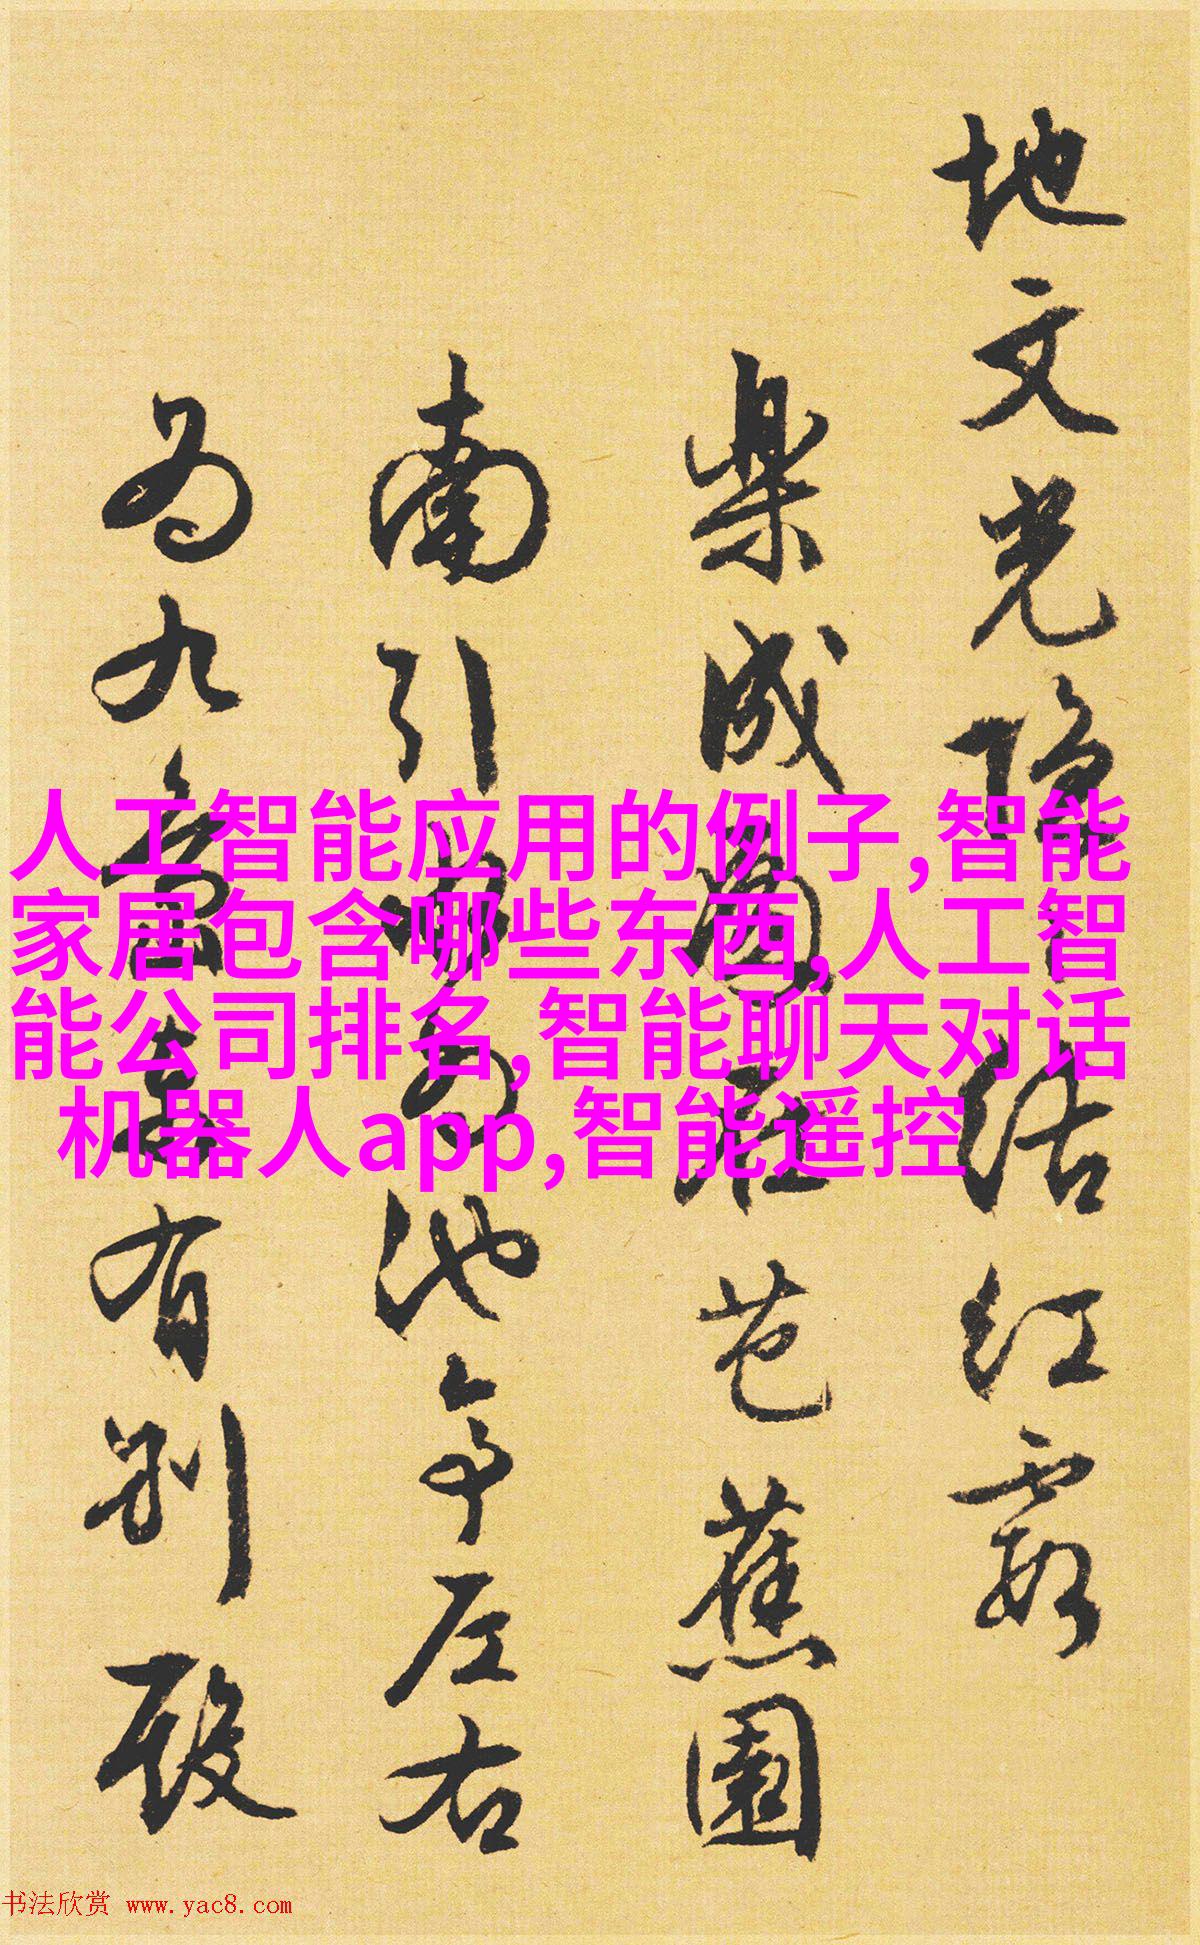 地文光隐结红霞
乐成阁在芭蕉园
南引水为池亭左右
为九岛来有别殿
人工智能应用的例子,智能
家居包含哪些东西,人工智
能公司排名,智能聊天对话
机器人app,智能遥控
书法欣赏 www.yac8.com